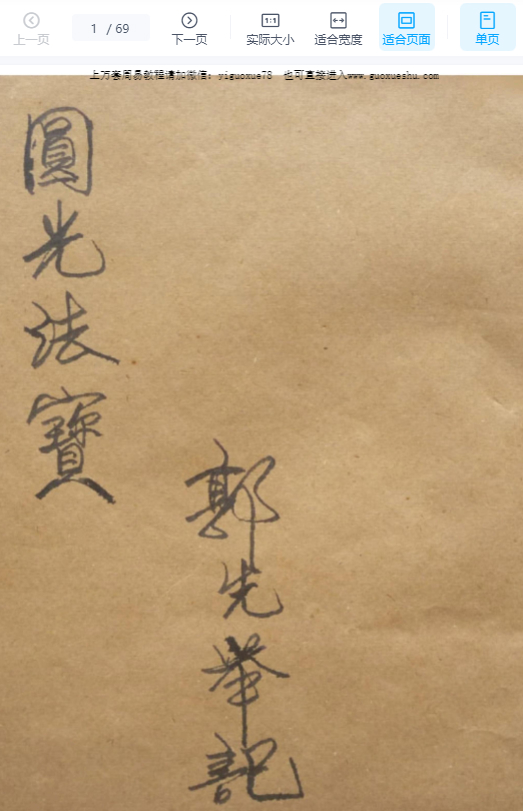 上一页
1 / 69
下一页
1:1
实际大小
适合宽度
适合页面
单页
上万套周易教程请加微信：yiguoxue78 也可直接进入www.guoxueshu.com
圓光法寶
郭先举記